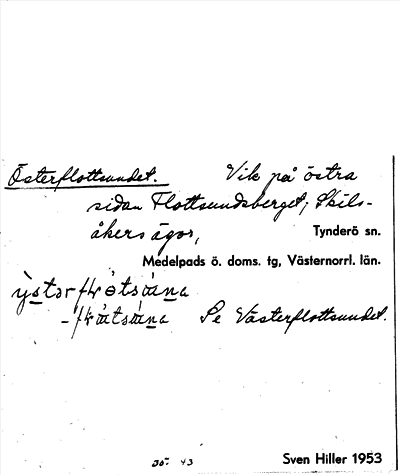 Österflottsundet. Vik på östra
sidan Flottsundsberget, Skils-
åkers ägor,
Tynderö sn.
Medelpads ö. doms. tg, Västernorrl. län.
Se Västerflottsundet.
Sven Hiller 1953